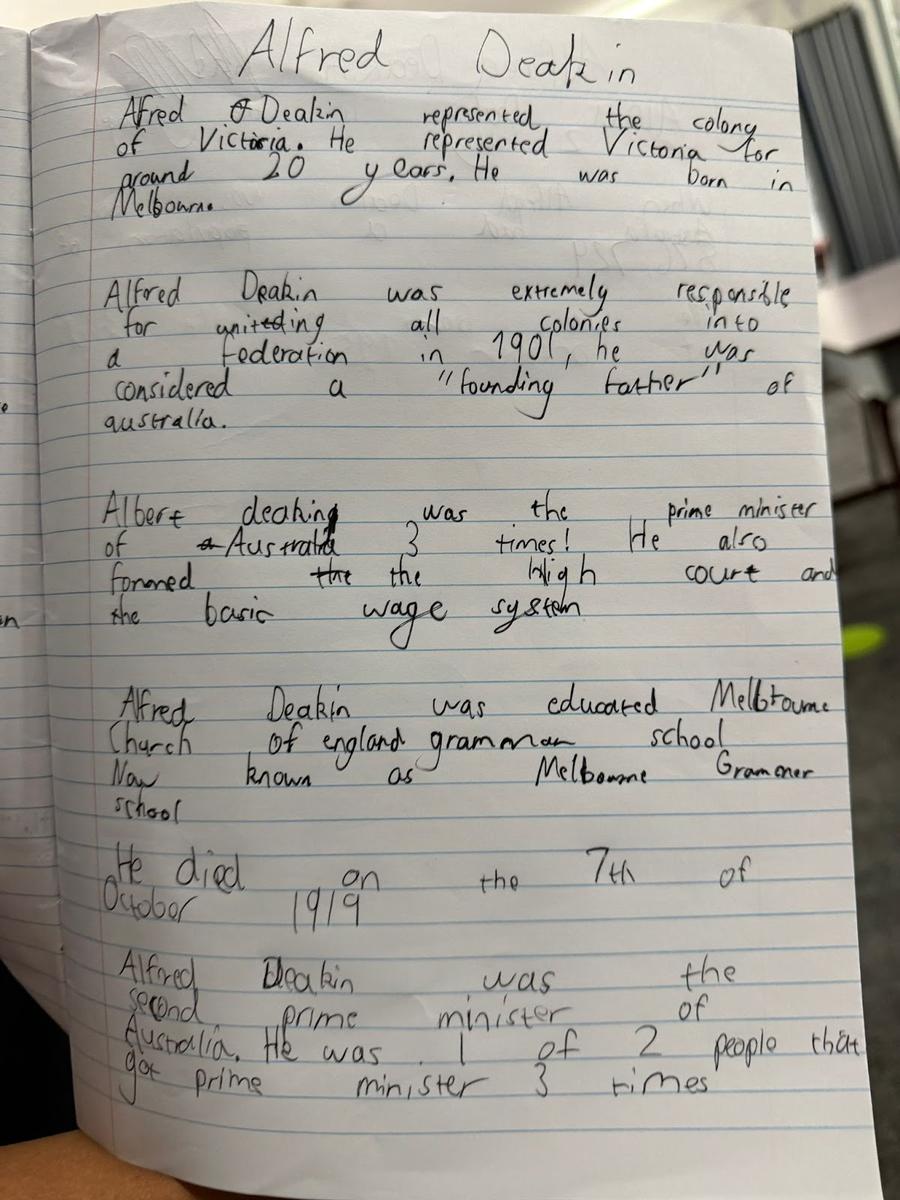 Alfred Deakin
Afred Deakin represented the colony
of Victoria. He represented Victoria for
around 20 years. He was born in
Melbourne
Alfred Deakin was extremely responsible
for uniting all colonies into
a federation in 1901, he was
considered a "founding father" of
australia.
Albert deaking was the prime minister
of Australia 3 times! He also
formed the the High court and
the basic wage system
Alfred Deakin was educated Melbourne
Church of england grammar school
Now known as Melbourne Grammer
school
He died on the 7th of
October 1919
Alfred Deakin was the
second prime minister of
Australia. He was 1 of 2 people that
got prime minister 3 times